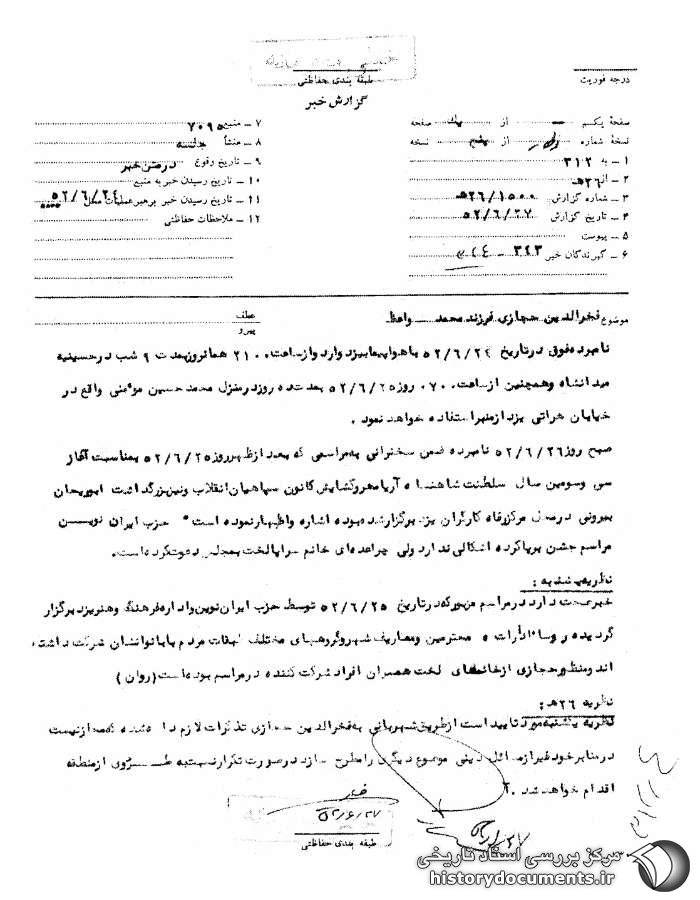 خیلی محرمانه
طبقه بندی حفاظتی
گزارش خبر
درجه فوریت
صفحهٔ یکسم از یك صفحه
نسخهٔ شماره از پنج نسخه
۱ – به ۳۱۲
۲ – از ۲۶ﻫ
۳ – شماره گزارش ۲۶/۱۵۰۰ﻫ
۴ – تاریخ گزارش ۵۲/۶/۲۷
۵ – پیوست
۶ – گیرندگان خبر ۳۴۳ –
۷ – منبع ۷۰۹۵
۸ – منشأ جلسه
۹ – تاریخ وقوع درمتن خبر
۱۰ – تاریخ رسیدن خبر به منبع
۱۱ – تاریخ رسیدن خبر برهبر عملیات محل ۵۲/۶/۲۶
۱۲ – ملاحظات حفاظتی
موضوع فخرالدین حجازی فرزند محمد – واعظ
عطف
پیرو
نامبرده فوق درتاریخ ۵۲/۶/۲۴ با هواپیما بیزد وارد و از ساعت ۲۱۰۰ همانروز بمدت ۹ شب در حسینیه
میدانشاه و همچنین از ساعت ۰۷۰۰ روز ۵۲/۶/۲۵ بمدت ده روز در منزل محمد حسین مؤمنی واقع در
خیابان هراتی یزد از منبر استفاده خواهد نمود .
صبح روز ۵۲/۶/۲۶ نامبرده ضمن سخنرانی به مراسمی که بعد از ظهر روز ۵۲/۶/۲۵ بمناسبت آغاز
سی وسومین سال سلطنت شاهنشاه آریامهر و گشایش کانون سپاهیان انقلاب و نیز بزرگداشت ابوریحان
بیرونی در محل مرکز رفاه کارگران یزد برگزار شده بوده اشاره و اظهار نموده است " حزب ایران نویسن
مراسم جشن برپا کرده اشکالی ندارد ولی چرا عده ای خانم سراپا لخت بمجلس دعوت کرده است.
نظریه شنبه :
خبر صحت دارد در مراسم مزبور که در تاریخ ۵۲/۶/۲۵ توسط حزب ایران نوین و اداره فرهنگ و هنر یزد برگزار
گردیده روسا ادارات و معترمین و معاریف شهر و گروههای مختلف طبقات مردم با بانوانشان شرکت داشته
اند و منظور حجازی از خانمهای لخت همسران افراد شرکت کننده در مراسم بوده است ( روان )
نظریه ۲۶ﻫ :
نظریه یکشنبه مورد تایید است از طریق شهربانی به فخرالدین حجازی تذکرات لازم داده شده که مجاز نیست
در منابر خود غیر از مسائل دینی موضوع دیگری را مطرح سازد در صورت تکرار نسبت به طرد وی از منطقه
اقدام خواهد شد .
طبقه بندی حفاظتی
مرکز بررسی اسناد تاریخی
historydocuments.ir